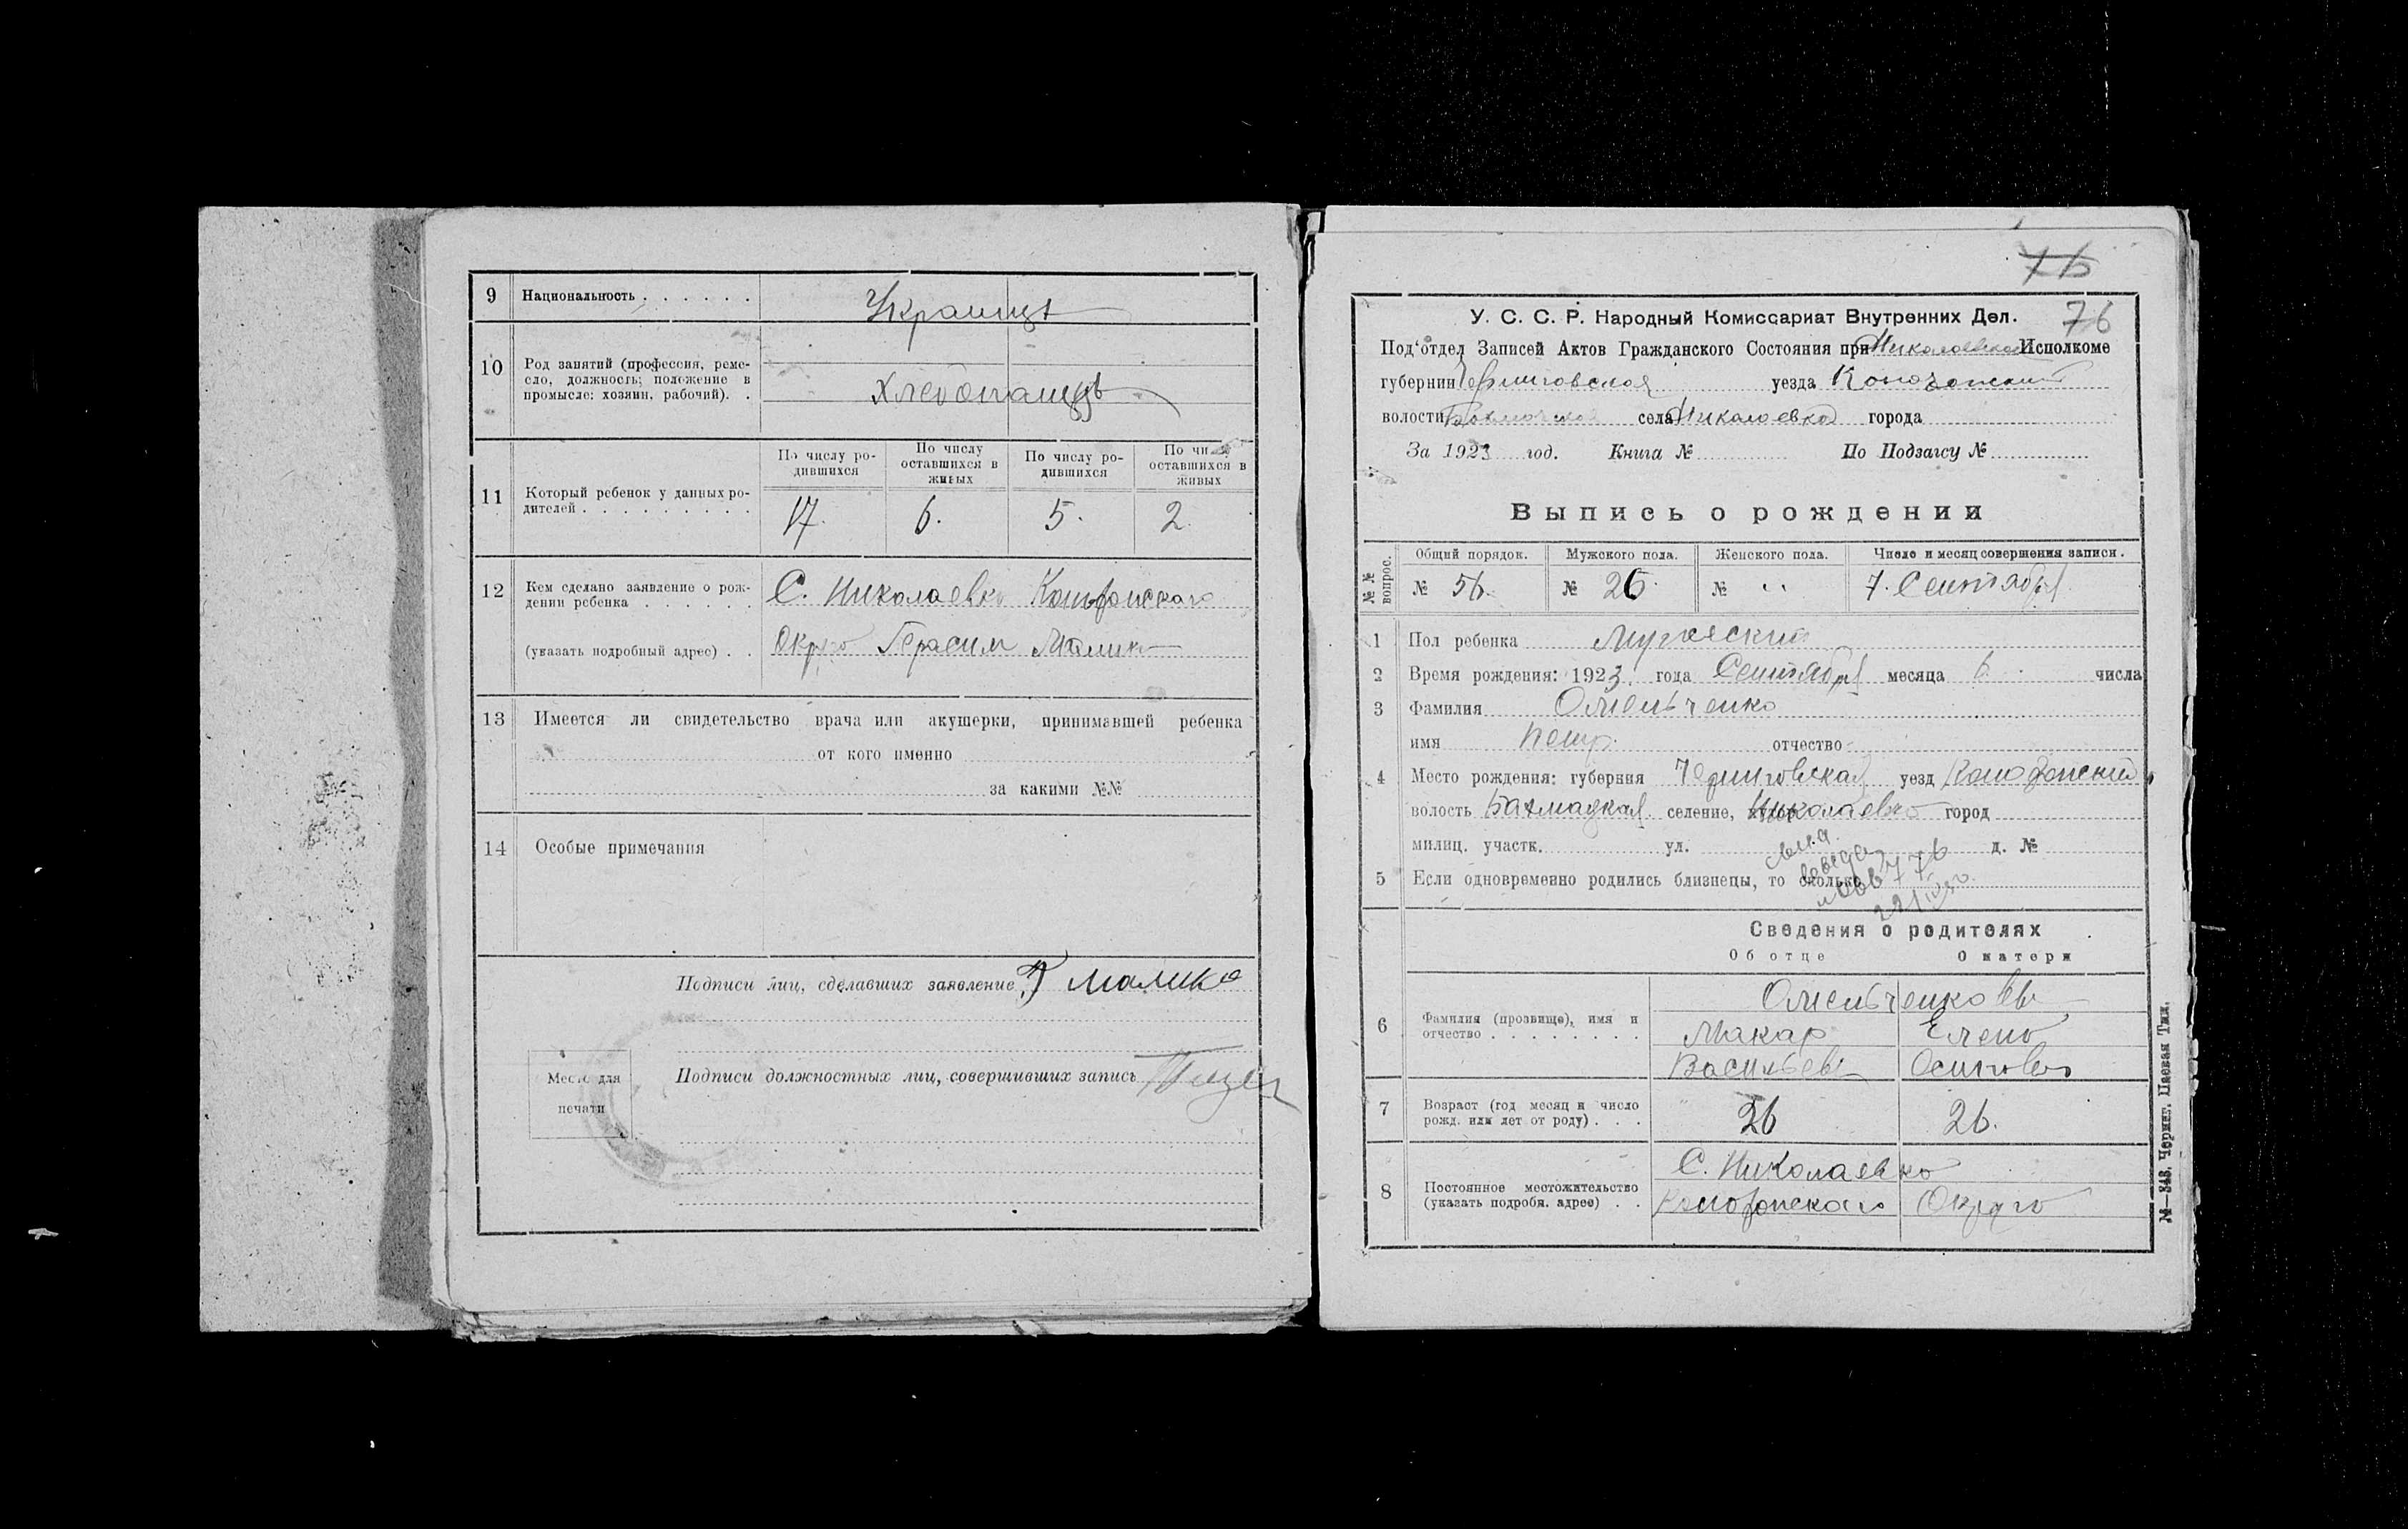 9 Национальность . . . . . . Украинцы
10 Род занятий (профессия, реме-
сло, должность; положение в
промысле: хозяин, рабочий). . Хлебопашцы
По числу ро-
дившихся
По числу
оставшихся в
живых
По числу ро-
дившихся
По чи
оставшихся в
живых
11 Который ребенок у данных ро-
дителей . . . . . . . . . 17. 6. 5. 2.
12 Кем сделано заявление о рож-
дении ребенка . . . . . . С. Николаевка Конотопского
(указать подробный адрес) . . Округа Герасим Малик
13 Имеется ли свидетельство врача или акушерки, принимавшей ребенка
от кого именно
за какими №№
14 Особые примечания
Подписи лиц, сделавших заявление Г Малик
Место для
печати
Подписи должностных лиц, совершивших запись
76
У. С. С. Р. Народный Комиссариат Внутренних Дел. 76
Под‘отдел Записей Актов Гражданского Состояния при Николаевском Исполкоме
губернии Черниговской уезда Конотопский
волости Бахмачской села Николаевка города
За 1923 год. Книга № По Подзагсу №
Выпись о рождении
№ № вопрос.
Общий порядок. Мужского пола. Женского пола. Число и месяц совершения записи.
№ 56. № 26. № " 7. Сентября
1 Пол ребенка Мужеский
2 Время рождения: 1923. года Сентября месяца 6 числа
3 Фамилия Омельченко
имя Петр. отчество
4 Место рождения: губерния Черниговская уезд Конотопский
волость Бахмацкая селение, хутор Николаевка город
милиц. участк. ул. д. №
5 Если одновременно родились близнецы, то сколько
776
Сведения о родителях
Об отце О матери
Омельченковы
6 Фамилия (прозвище), имя и
отчество . . . . . . . . Макар Елена
Васильев Осиповна
7 Возраст (год месяц и число
рожд. или лет от роду) . . . 26 26.
8 Постоянное местожительство
(указать подробн. адрес) . . С. Николаевка
Конотопского Округа
№—348. Черниг. Паевая Тип.